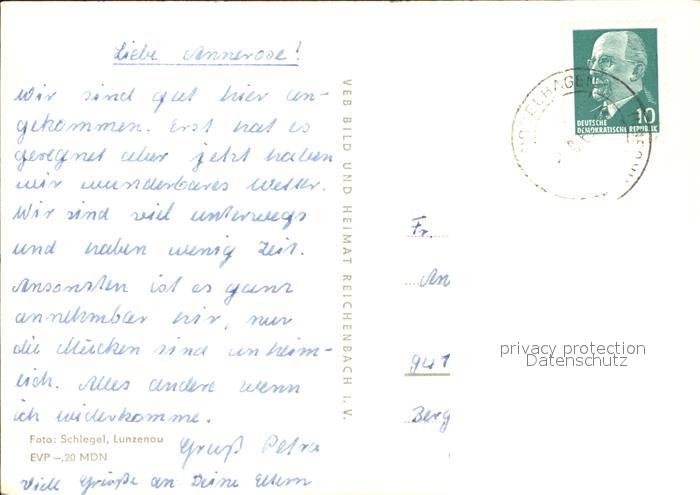 Liebe Annerose!
Wir sind gut hier an-
gekommen. Erst hat es
geregnet aber jetzt haben
wir wunderbares Wetter.
Wir sind viel unterwegs
und haben wenig Zeit.
Ansonsten ist es ganz
annehmbar hir, nur
die Mücken sind unheim-
lich. Alles andere wenn
ich widerkomme.
Gruß Petra
Viele Grüße an Deine Eltern
Foto: Schlegel, Lunzenau
EVP –,20 MDN
VEB BILD UND HEIMAT REICHENBACH I. V.
10
DEUTSCHE
DEMOKRATISCHE REPUBLIK
Fr.
An
941
Berg
privacy protection
Datenschutz